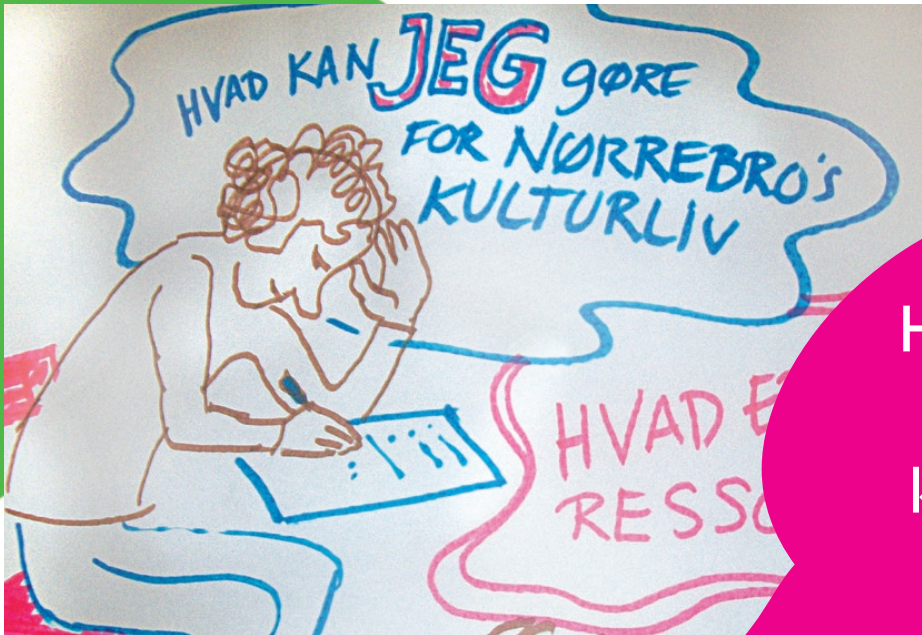 HVAD KAN JEG gØRE
FOR NØRREBRO's
KULTURLIV
HVAD